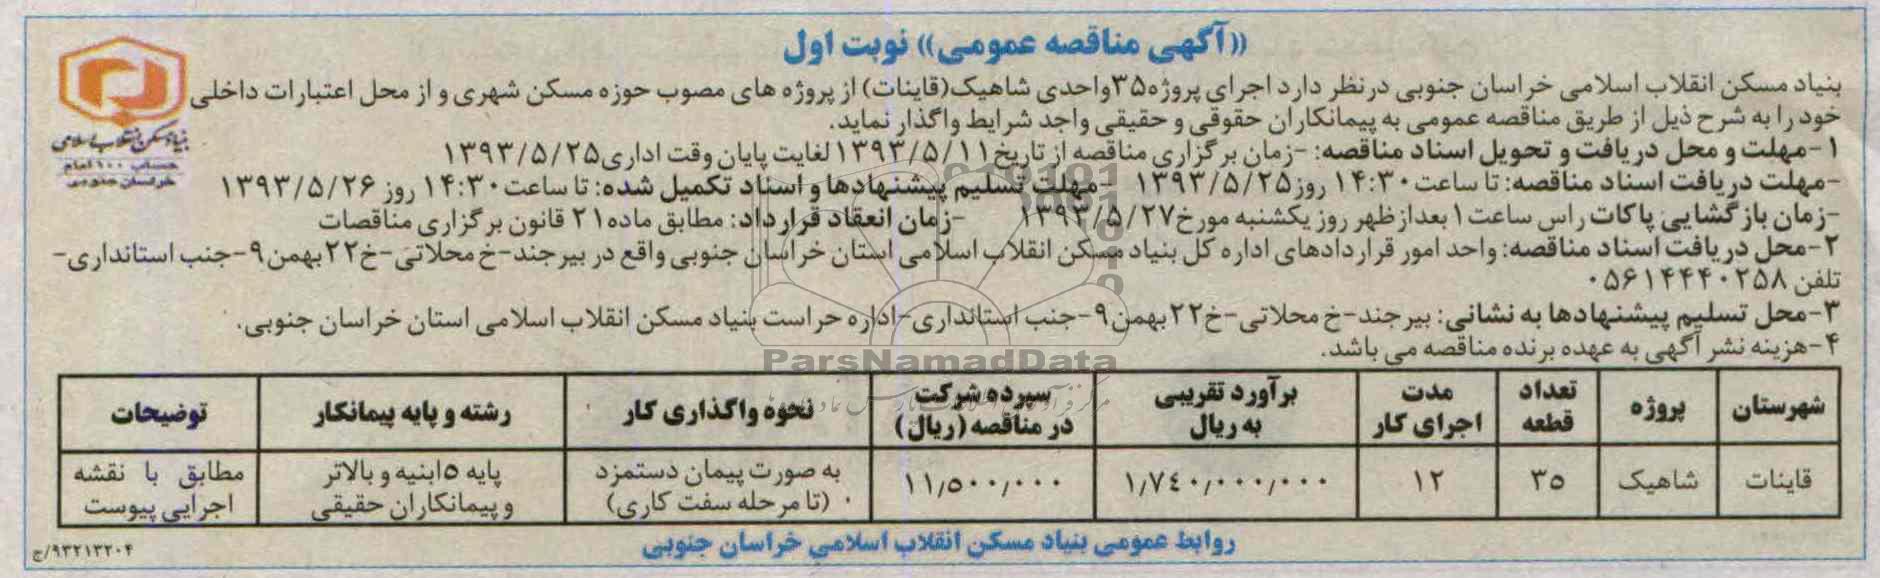 ((آگهی مناقصه عمومی)) نوبت اول
بنیاد مسکن انقلاب اسلامی خراسان جنوبی درنظر دارد اجرای پروژه۳۵واحدی شاهیک(قاینات) از پروژه های مصوب حوزه مسکن شهری و از محل اعتبارات داخلی
خود را به شرح ذیل از طریق مناقصه عمومی به پیمانکاران حقوقی و حقیقی واجد شرایط واگذار نماید.
۱-مهلت و محل دریافت و تحویل اسناد مناقصه: -زمان برگزاری مناقصه از تاریخ۱۳۹۳/۵/۱۱ لغایت پایان وقت اداری۱۳۹۳/۵/۲۵
-مهلت دریافت اسناد مناقصه: تا ساعت۱۴:۳۰ روز۱۳۹۳/۵/۲۵ -مهلت تسلیم پیشنهادها و اسناد تکمیل شده: تا ساعت۱۴:۳۰ روز ۱۳۹۳/۵/۲۶
-زمان بازگشایی پاکات راس ساعت۱بعدازظهر روز یکشنبه مورخ۱۳۹۳/۵/۲۷ -زمان انعقاد قرارداد: مطابق ماده۲۱ قانون برگزاری مناقصات
۲-محل دریافت اسناد مناقصه: واحد امور قراردادهای اداره کل بنیاد مسکن انقلاب اسلامی استان خراسان جنوبی واقع در بیرجند-خ محلاتی-خ۲۲بهمن۹-جنب استانداری-
تلفن ۰۵۶۱۴۴۴۰۲۵۸
۳-محل تسلیم پیشنهادها به نشانی: بیرجند-خ محلاتی-خ۲۲بهمن۹-جنب استانداری-اداره حراست بنیاد مسکن انقلاب اسلامی استان خراسان جنوبی.
۴-هزینه نشر آگهی به عهده برنده مناقصه می باشد.
شهرستان پروژه تعداد قطعه مدت اجرای کار برآورد تقریبی به ریال سپرده شرکت در مناقصه (ریال) نحوه واگذاری کار رشته و پایه پیمانکار توضیحات
قاینات شاهیک ۳۵ ۱۲ ۱/۷۴۰/۰۰۰/۰۰۰ ۱۱/۵۰۰/۰۰۰ به صورت پیمان دستمزد (تا مرحله سفت کاری) پایه ۵ابنیه و بالاتر و پیمانکاران حقیقی مطابق با نقشه اجرایی پیوست
روابط عمومی بنیاد مسکن انقلاب اسلامی خراسان جنوبی
۹۳۲۱۳۲۰۴/ج
بنیاد مسکن انقلاب اسلامی
حساب ۱۰۰ امام
خراسان جنوبی
ParsNamadData